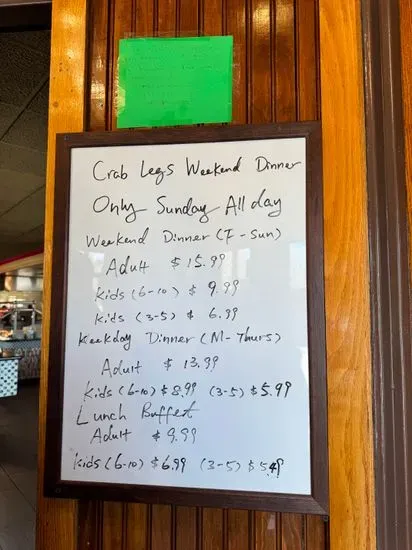 Crab Legs Weekend Dinner
Only Sunday All day
Weekend Dinner (F-Sun)
Adult $15.99
Kids (6-10) $9.99
Kids (3-5) $6.99
Weekday Dinner (M-Thurs)
Adult $13.99
Kids (6-10) $8.99 (3-5) $5.99
Lunch Buffet
Adult $9.99
Kids (6-10) $6.99 (3-5) $5.49